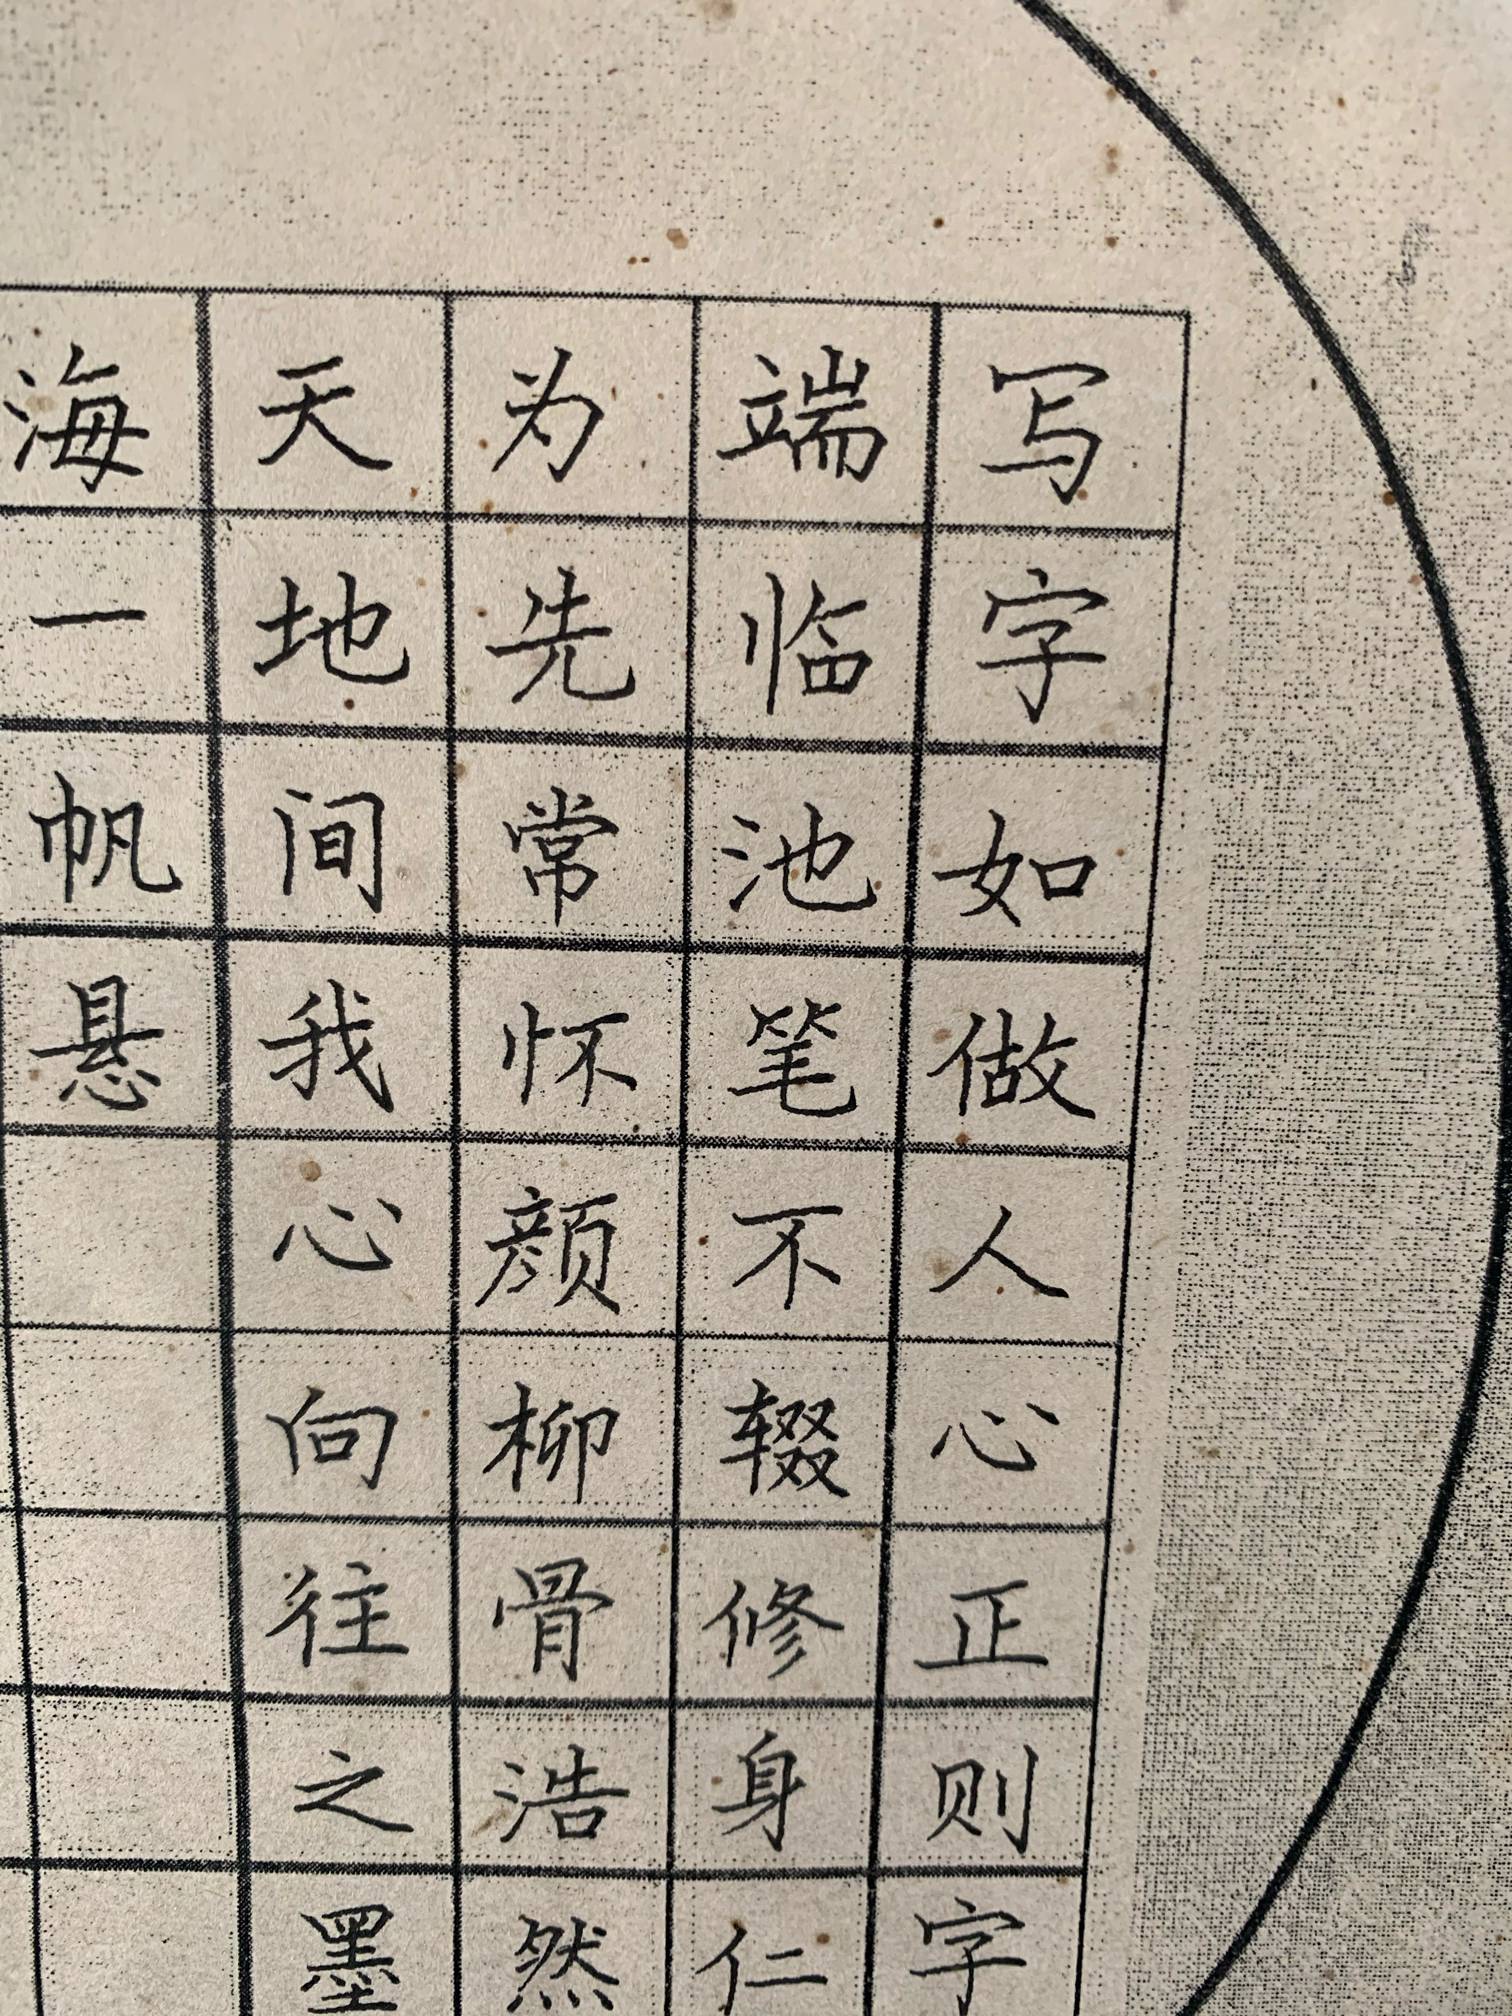 写字如做人心正则字
端临池笔不辍修身仁
为先常怀颜柳骨浩然
天地间我心向往之墨
海一帆悬